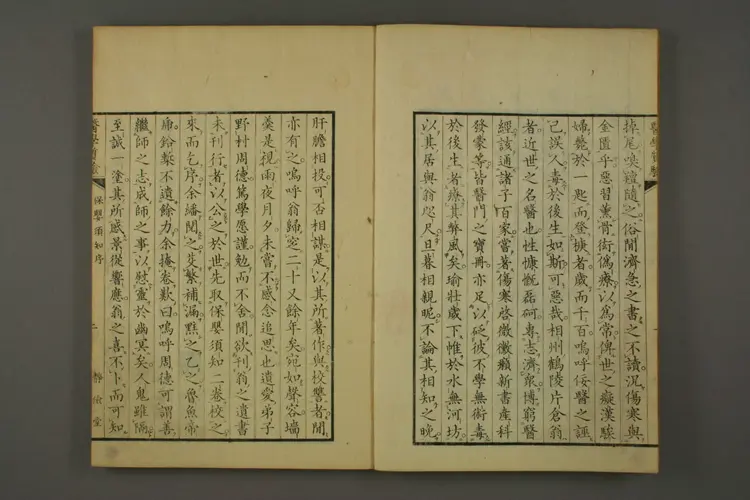 掉尾喚䭾隨之俗間濟急之書之不讀況傷寒與
金匱乎惡習薰骨衒僞療以爲常俾世之癡漢騃
婦斃於一匙而登鬼者歲而千百嗚呼佞醫之誣
己誤人毒於後生如斯可惡哉相州鶴陵片倉翁
者近世之名醫也性慷慨磊砢專志濟衆博窮醫
經該通諸子百家嘗著傷寒啓微黴癩新書産科
發蒙等皆醫門之寶冊亦足以砭彼不學無術毒
於後生者療其弊風矣瑜壯歲下帷於水無河坊
以其居與翁咫尺旦暮相親昵不論其相知之晚
肝膽相投可否相謀是以其所著作與校讐者間
亦有之嗚呼翁歸窆二十又餘年矣宛如聲容墻
羹是視雨夜月夕未嘗不感念追思也遺愛弟子
野村周德篤學愿謹勉而不舍間欲刊翁之遺書
未刊行者以公之於世先取保嬰須知二卷校之
來而乞序余繙閱之芟繁補漏㸃之乙之魯魚帝
乕鈴槧不遺餘力余掩卷歎曰嗚呼周德可謂善
繼師之志成師之事以慰靈於幽冥矣人鬼雖隔
至誠一塗其所感景從響應翁之喜不卜而可知
保嬰須知序
二
靜儉堂